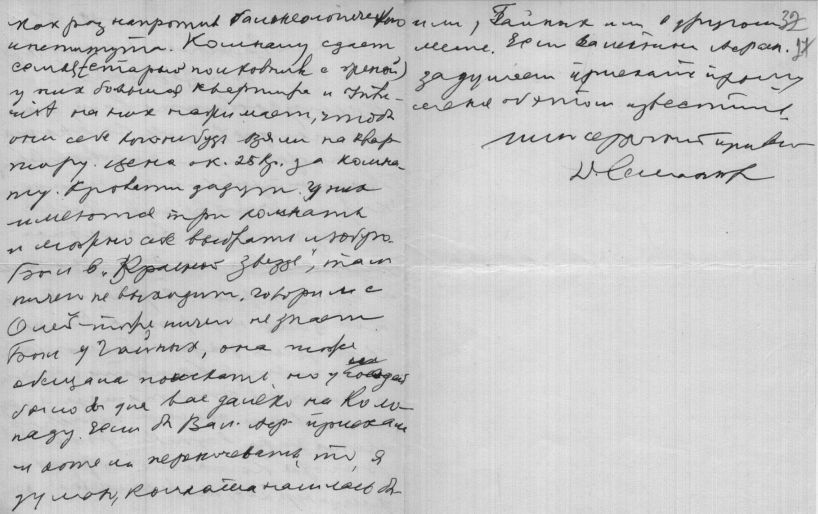 как раз напротив бальнеологического
института. Комнату сдает
семья (старый полковник с женой)
у них большая квартира и
на них нажимает, чтобы
они себе кого нибудь взяли на квар
тиру. Цена ок. 25 за комна
ту. Кровати дадут. У них
имеются три комнаты
и можно себе выбрать любую.
Был в "Красной звезде", там
ничего не выходит, говорил с
Олей тоже ничего не знает
Был у Чайных, она тоже
обещала поискать, но у
было бы для вас далеко на Коло
наду. Если бы Вал. Афр. приехала
и хотела переночевать, то, я
думаю, комната нашлась бы
или у Гайных или в другом
месте. Если Валентина Афран.
задумает приехать прошу
меня об этом известить.
Мой сердечный привет
32